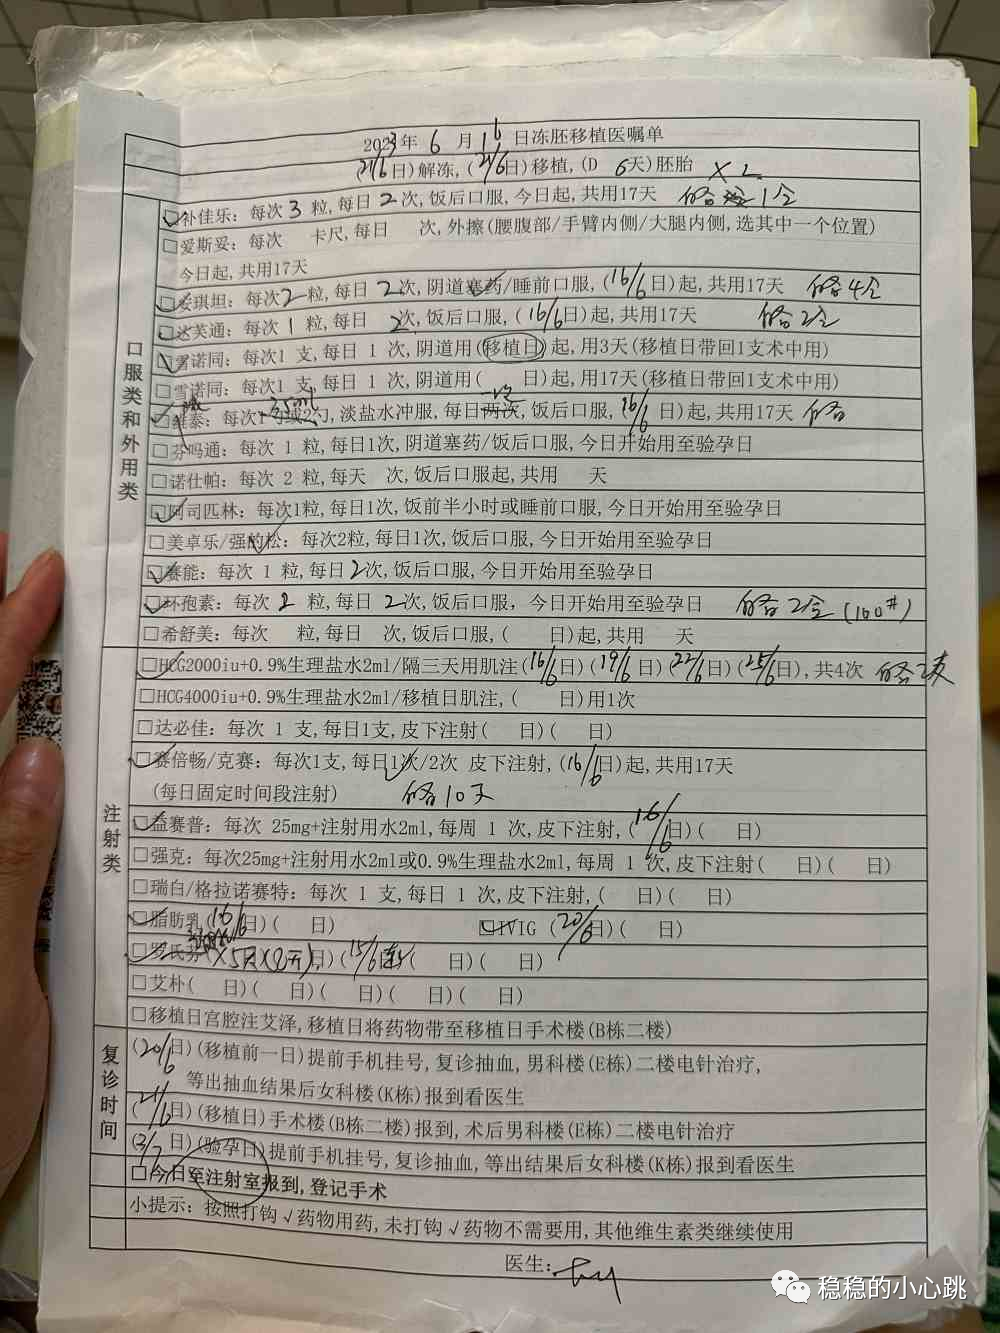 2023年 6 月 16 日冻胚移植医嘱单
(21/6日)解冻,(21/6日)移植,(D 6天)胚胎 ×2
口服类和外用类
☑补佳乐：每次 3 粒,每日 2 次,饭后口服,今日起,共用17天 1盒
□爱斯妥：每次 卡尺,每日 次,外擦(腰腹部/手臂内侧/大腿内侧,选其中一个位置)
今日起,共用17天
☑安琪坦：每次2粒,每日 2次,阴道塞药/睡前口服,(16/6日)起,共用17天 4盒
☑达芙通：每次 1 粒,每日 2次,饭后口服,(16/6日)起,共用17天 2盒
☑雪诺同：每次1 支,每日 1 次,阴道用(移植日)起,用3天(移植日带回1支术中用)
□雪诺同：每次1 支,每日 1 次,阴道用( 日)起,用17天(移植日带回1支术中用)
☑维泰：每次1勺或2勺,淡盐水冲服,每日两次,饭后口服,(16/6 日)起,共用17天
□芬吗通：每次 1 粒,每日1次,阴道塞药/饭后口服,今日开始用至验孕日
□诺仕帕：每次 2 粒,每天 次,饭后口服起,共用 天
☑阿司匹林：每次1粒,每日1次,饭前半小时或睡前口服,今日开始用至验孕日
□美卓乐/强的松：每次2粒,每日1次,饭后口服,今日开始用至验孕日
☑赛能：每次 1 粒,每日2次,饭后口服,今日开始用至验孕日
☑环孢素：每次 2 粒,每日 2次,饭后口服，今日开始用至验孕日 2盒(100#)
□希舒美：每次 粒,每日 次,饭后口服,( 日)起,共用 天
注射类
☑HCG2000iu+0.9%生理盐水2ml/隔三天用肌注(16/6日)(19/6日)(22/6日)(25/6日),共4次
□HCG4000iu+0.9%生理盐水2ml/移植日肌注,( 日)用1次
□达必佳：每次 1 支,每日1支,皮下注射( 日)( 日)
☑赛倍畅/克赛：每次1支,每日1次/2次 皮下注射,(16/6日)起,共用17天
(每日固定时间段注射) 10支
☑益赛普：每次 25mg+注射用水2ml,每周 1 次,皮下注射,(16/6日)( 日)
□强克：每次25mg+注射用水2ml或0.9%生理盐水2ml,每周 1 次,皮下注射( 日)( 日)
□瑞白/格拉诺赛特：每次 1 支,每日 1 次,皮下注射,( 日)( 日)
☑脂肪乳(16/6日)( 日) ☑IVIG (20/6日)( 日)
☑罗氏芬 日)(15/6 ( 日)( 日)
□艾朴( 日)( 日)( 日)( 日)( 日)
□移植日宫腔注艾泽,移植日将药物带至移植日手术楼(B栋二楼)
复诊时间
(20/6日)(移植前一日)提前手机挂号,复诊抽血,男科楼(E栋)二楼电针治疗,
等出抽血结果后女科楼(K栋)报到看医生
(21/6日)(移植日)手术楼(B栋二楼)报到,术后男科楼(E栋)二楼电针治疗
(3/7 日)(验孕日)提前手机挂号,复诊抽血,等出结果后女科楼(K栋)报到看医生
□今日至注射室报到,登记手术
小提示：按照打钩√药物用药,未打钩√药物不需要用,其他维生素类继续使用
医生：
稳稳的小心跳